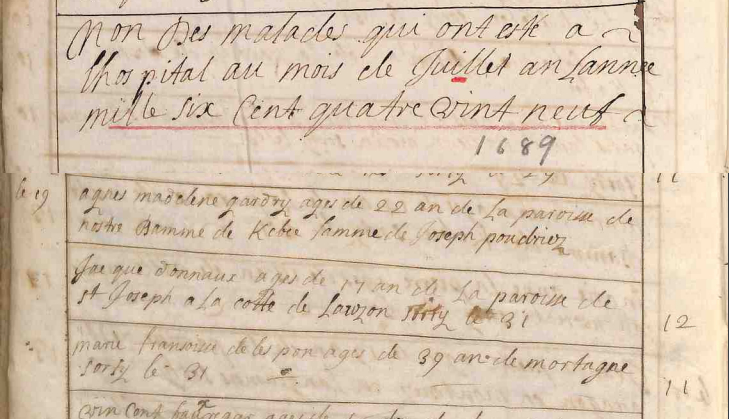 Non Des malades qui ont esté a
lhospital au mois de Juillet an Lannee
mille six Cent quatre vint neuf
1689
11
le 19
agnes madelene gardry ages de 22 an de La paroise de
nostre Damme de Kebec famme de Joseph poudriez
Jacque donnaux ages de 17 an de La paroise de
st Joseph a la cotte de Lawzon sorty le 31
12
marie fransoise de les pon ages de 39 an de mortagne
sorty le 31
11
vin Cent